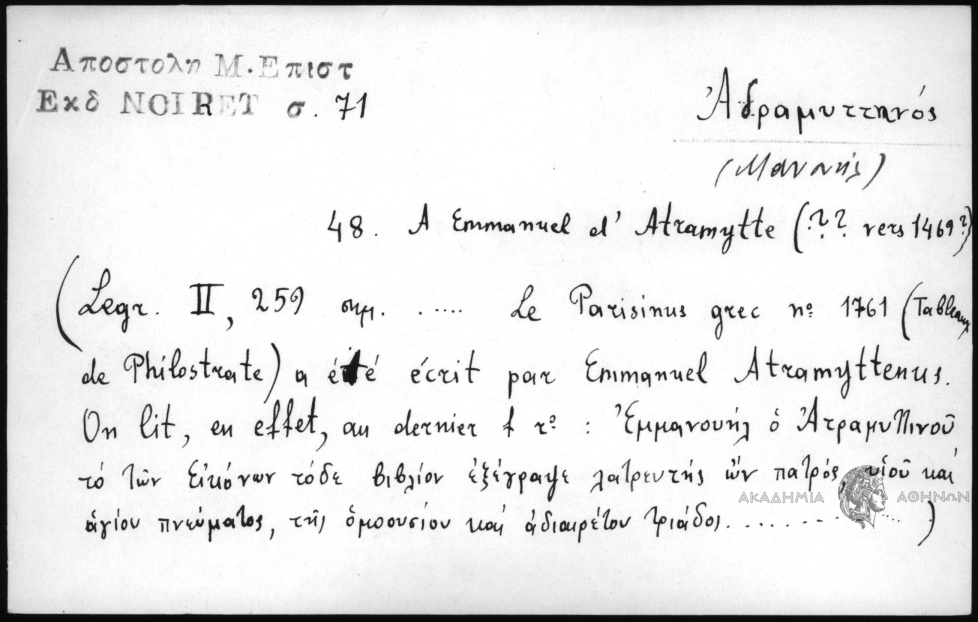 Αποστολη Μ. Επιστ
Εκδ NOIRET σ. 71
Ἀδραμυττηνός
(Μανουήλ)
48. A Emmanuel d' Atramytte (?? vers 1469?)
(Legr. II, 259 σημ. ..... Le Parisinus grec nº 1761 (Tableaux
de Philostrate) a été écrit par Emmanuel Atramyttenus.
On lit, en effet, au dernier f rº : Ἐμμανουήλ ὁ Ἀτραμυττινοῦ
τό τῶν Εἰκόνων τόδε βιβλίον ἐξέγραψε λατρευτής ὤν πατρός, υἱοῦ καί
ἁγίου πνεύματος, τῆς ὁμοουσίου καί ἀδιαιρέτου τριάδος..........)
ΑΚΑΔΗΜΙΑ ΑΘΗΝΩΝ